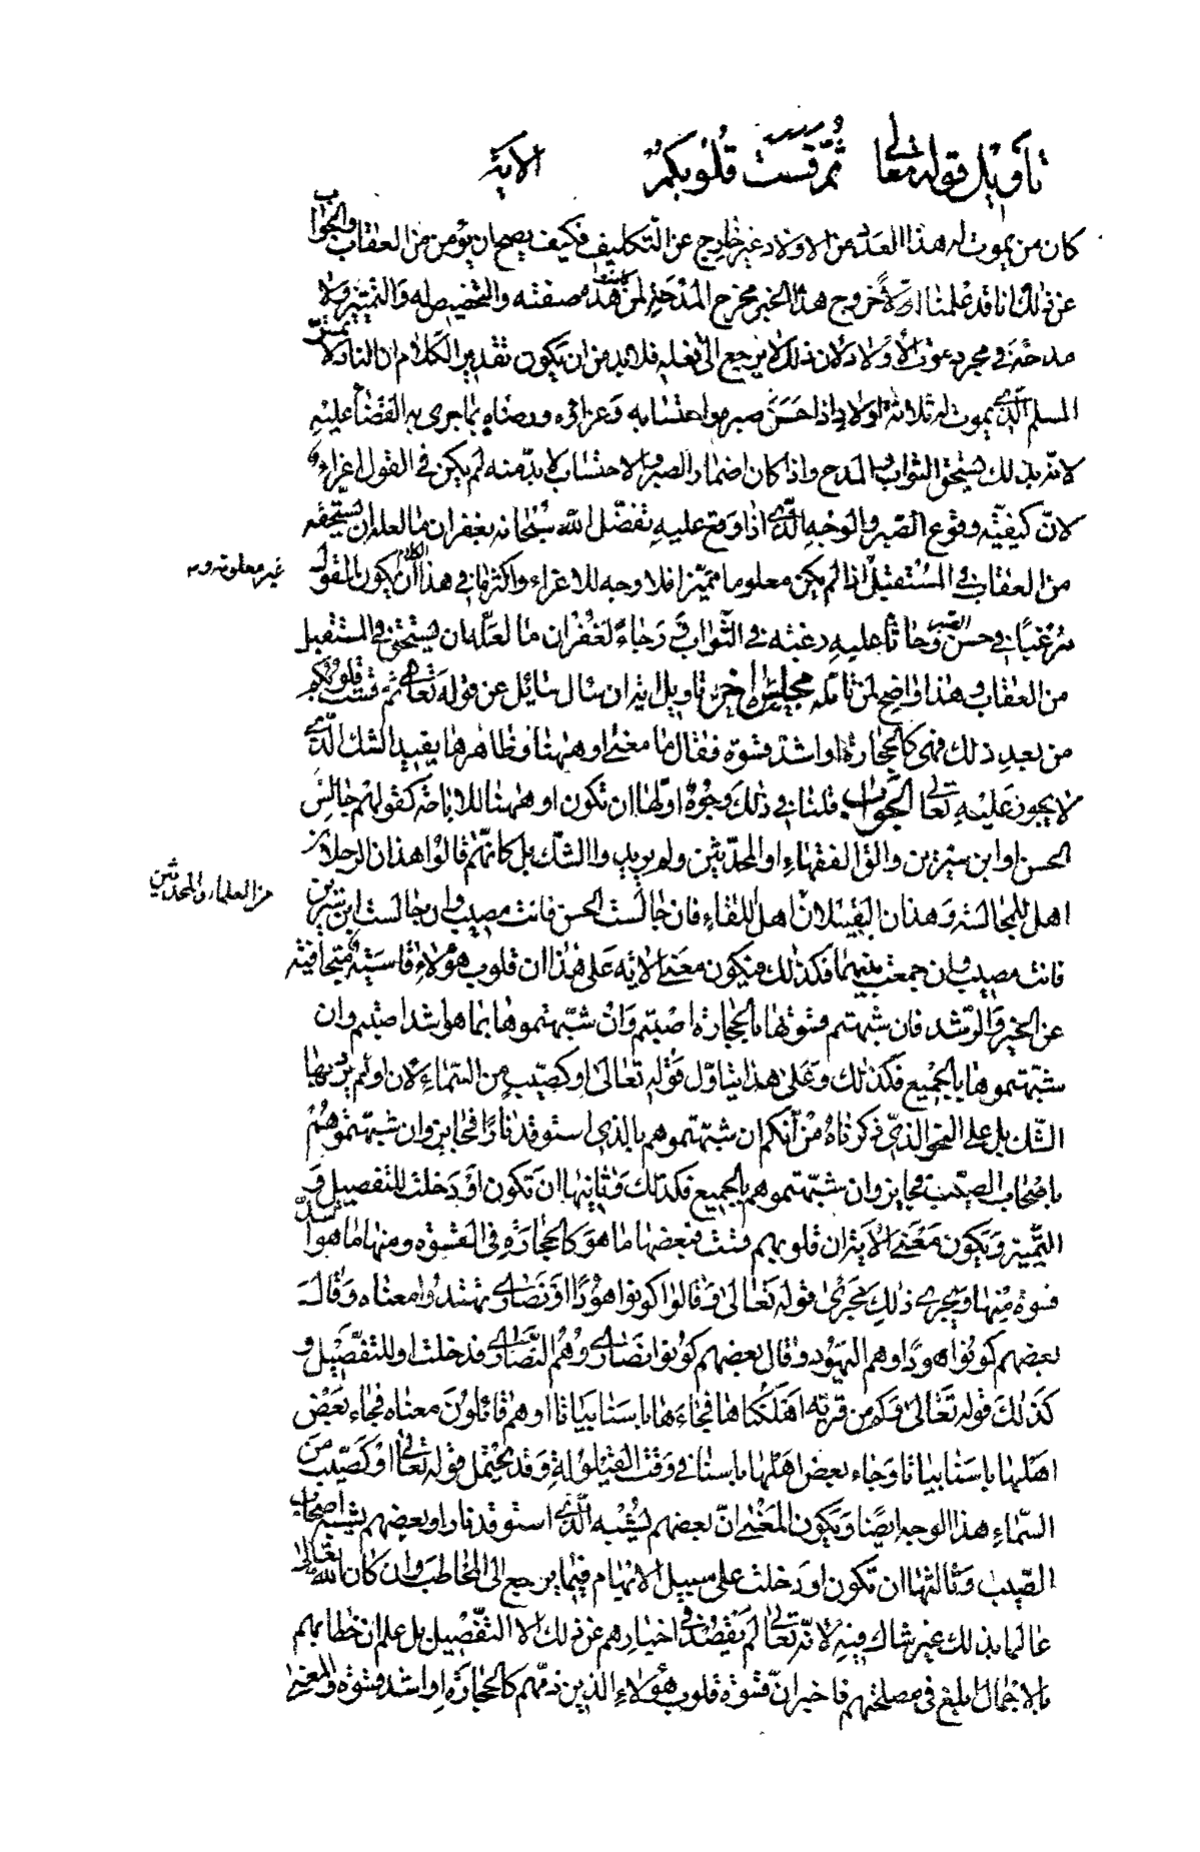 تأويل قوله تعالى ثم قست قلوبكم الآية
كان من يموت له هذا العدد من الاولاد غير خارج عن التكليف فكيف يصح ان يؤمن من العقاب والجواب
عن ذلك انا قد علمنا اولا خروج هذا الخبر مخرج المدحة لمن هذه صفته والتخصيص له والتمييز ولا
مدحة في مجرد موت الأولاد لان ذلك لا يرجع الى فعله فلا بد من ان يكون تقدير الكلام ان النار لا تمس
المسلم الذي يموت له ثلاثة اولاد اذا حسن صبره واحتسابه وعزاؤه ورضاه بما جرى به القضاء عليه
لانه بذلك يستحق الثواب والمدح واذا كان اضمار الصبر والاحتساب لا بد منه لم يكن في القول اغراء
لان كيفية وقوع الصبر والوجه الذي اذا وقع عليه تفضل الله سبحانه بغفران ما لعله ان يستحقه
من العقاب في المستقبل اذا لم يكن معلوما متميزا فلا وجه للاغراء واكثر ما في هذا الكلام ان يكون القول
غير معلومة
مرغبا في حسن الصبر وحاثا عليه رغبة في الثواب ورجاء لغفران ما لعله ان يستحق في المستقبل
من العقاب وهذا واضح لمن تأمله مجلس اخر تاويل اية ان سال سائل عن قوله تعالى ثم قست قلوبكم
من بعد ذلك فهى كالحجارة او اشد قسوة فقال ما معنى او ههنا وظاهرها يفيد الشك الذي
لا يجوز عليه تعالى الجواب قلنا في ذلك وجوه اولها ان تكون او ههنا للاباحة كقولهم جالس
الحسن او ابن سيرين والق الفقهاء او المحدثين ولم يريدوا الشك بل كانهم قالوا هذان الرجلان
من العلماء والمحدثين
اهل للمجالسة وهذان القبيلان اهل للقاء فان جالست الحسن فانت مصيب وان جالست ابن سيرين
فانت مصيب وان جمعت بينهما فكذلك فيكون معنى الاية على هذا ان قلوب هؤلاء قاسية متجافية
عن الخير والرشد فان شبهتم قسوتها بالحجارة اصبتم وان شبهتموها بما هو اشد اصبتم وان
شبهتموها بالجميع فكذلك وعلى هذا يتاول قوله تعالى او كصيب من السماء لان او لم يرد بها
الشك بل على النحو الذي ذكرناه من أنكم ان شبهتموهم بالذي استوقد نارا فجايز وان شبهتموهم
باصحاب الصيب فجايز وان شبهتموهم بالجميع فكذلك وثانيها ان تكون او دخلت للتفصيل و
التمييز ويكون معنى الاية ان قلوبهم قست فبعضها ما هو كالحجارة في القسوة ومنها ما هو اشد
قسوة منها ويجرى ذلك مجرى قوله تعالى وقالوا كونوا هودا او نصارى تهتدوا معناه وقال
بعضهم كونوا هودا وهم اليهود وقال بعضهم كونوا نصارى وهم النصارى فدخلت او للتفصيل و
كذلك قوله تعالى وكم من قرية اهلكناها فجاءها باسنا بياتا او هم قائلون معناه فجاء بعض
اهلها باسنا بياتا وجاء بعض اهلها باسنا في وقت القيلولة وقد يحتمل قوله تعالى او كصيب من
السماء هذا الوجه ايضا ويكون المعنى ان بعضهم يشبه الذي استوقد نارا وبعضهم يشبه اصحاب
الصيب وثالثها ان تكون او دخلت على سبيل الابهام فيما يرجع الى المخاطب وان كان الله تعالى
عالما بذلك غير شاك فيه لانه تعالى لم يقصد في اخبارهم عن ذلك الا التفصيل بل علم ان خطابهم
بالاجمال ابلغ في مصلحتهم فاخبر ان قسوة قلوب هؤلاء الذين ذمهم كالحجارة او اشد قسوة والمعنى